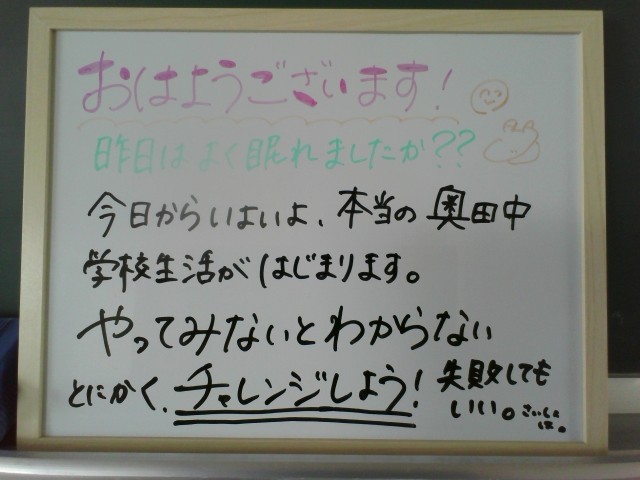 おはようございます!
昨日はよく眠れましたか??
今日からいよいよ、本当の奥田中
学校生活がはじまります。
やってみないとわからない
とにかく、チャレンジしよう!
失敗しても
いい。さいしょ
は。